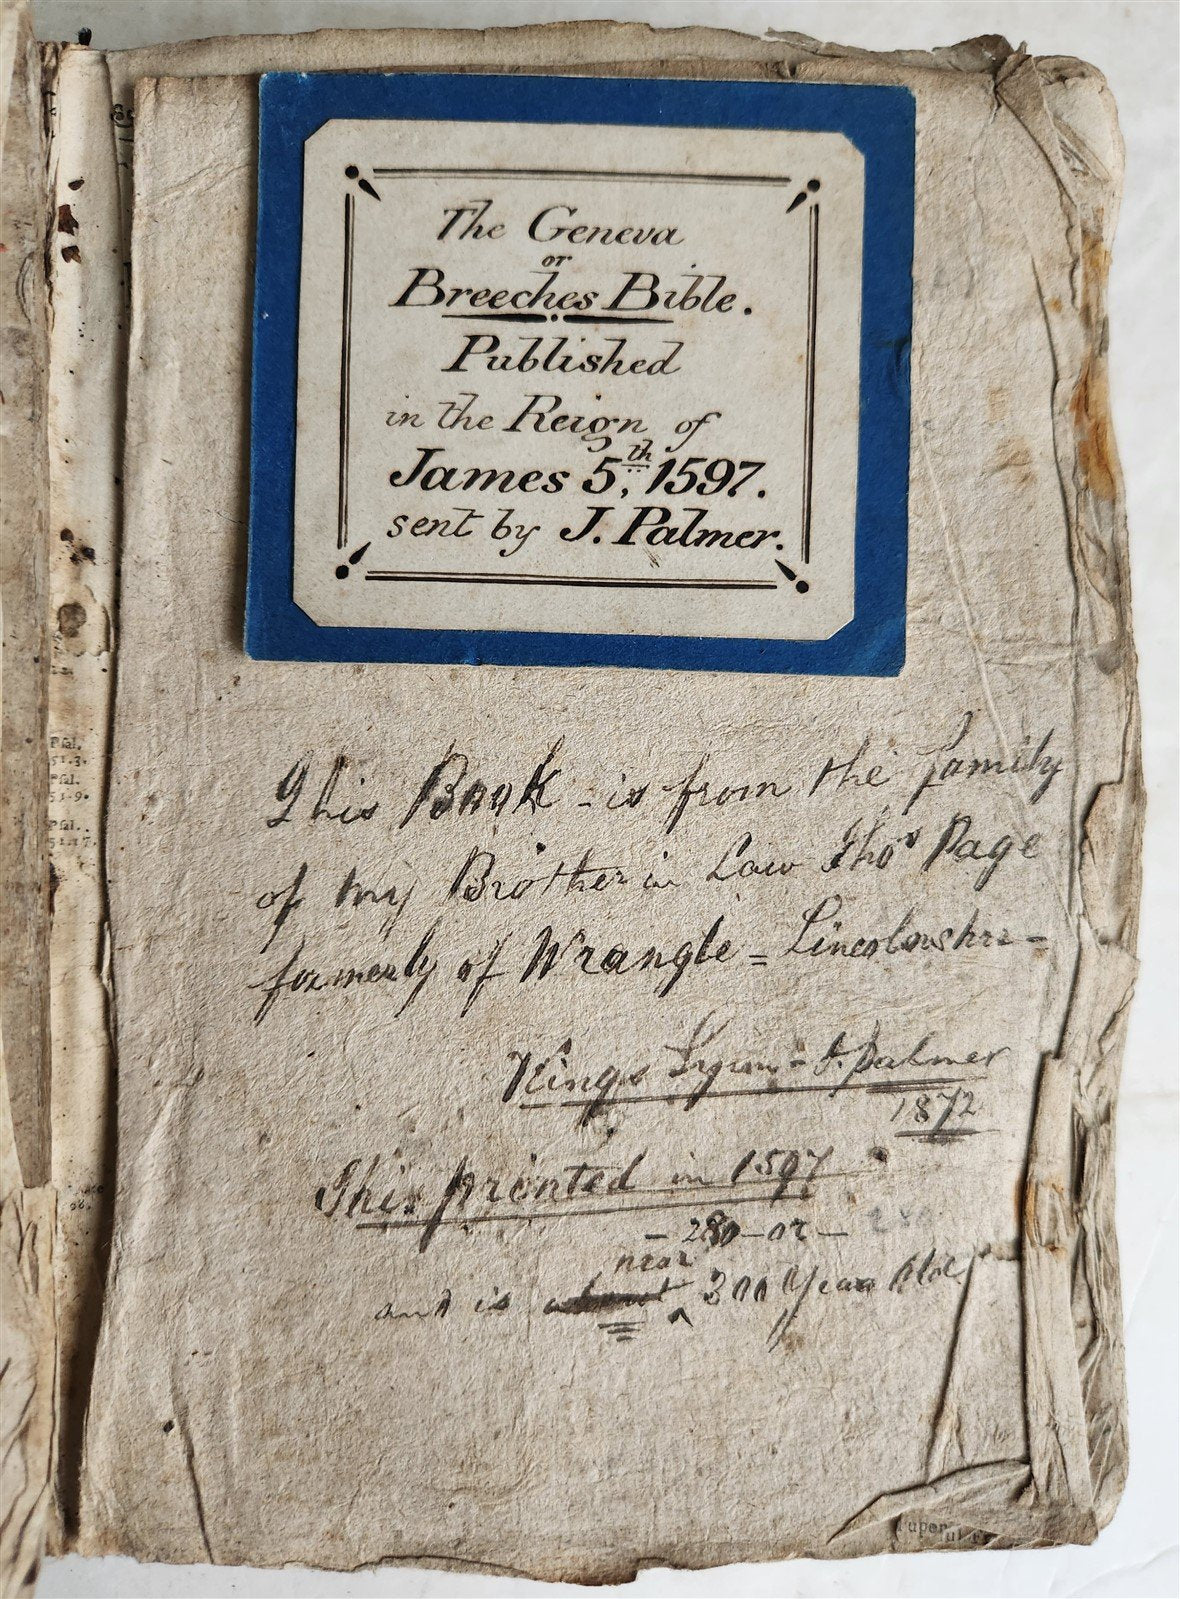 The Geneva
or
Breeches Bible.
Published
in the Reign of
James 5th, 1597.
sent by J. Palmer.
This Book - is from the family
of my Brother in Law Thos Page
formerly of Wrangle = Lincolnshire -
Kings Lynn - J. Palmer
1872
This printed in 1597
- 280 - or - 280
near
and is about ^ 300 Years Old
Psal.
51.3.
Psal.
51.9.
Psal.
51.17.